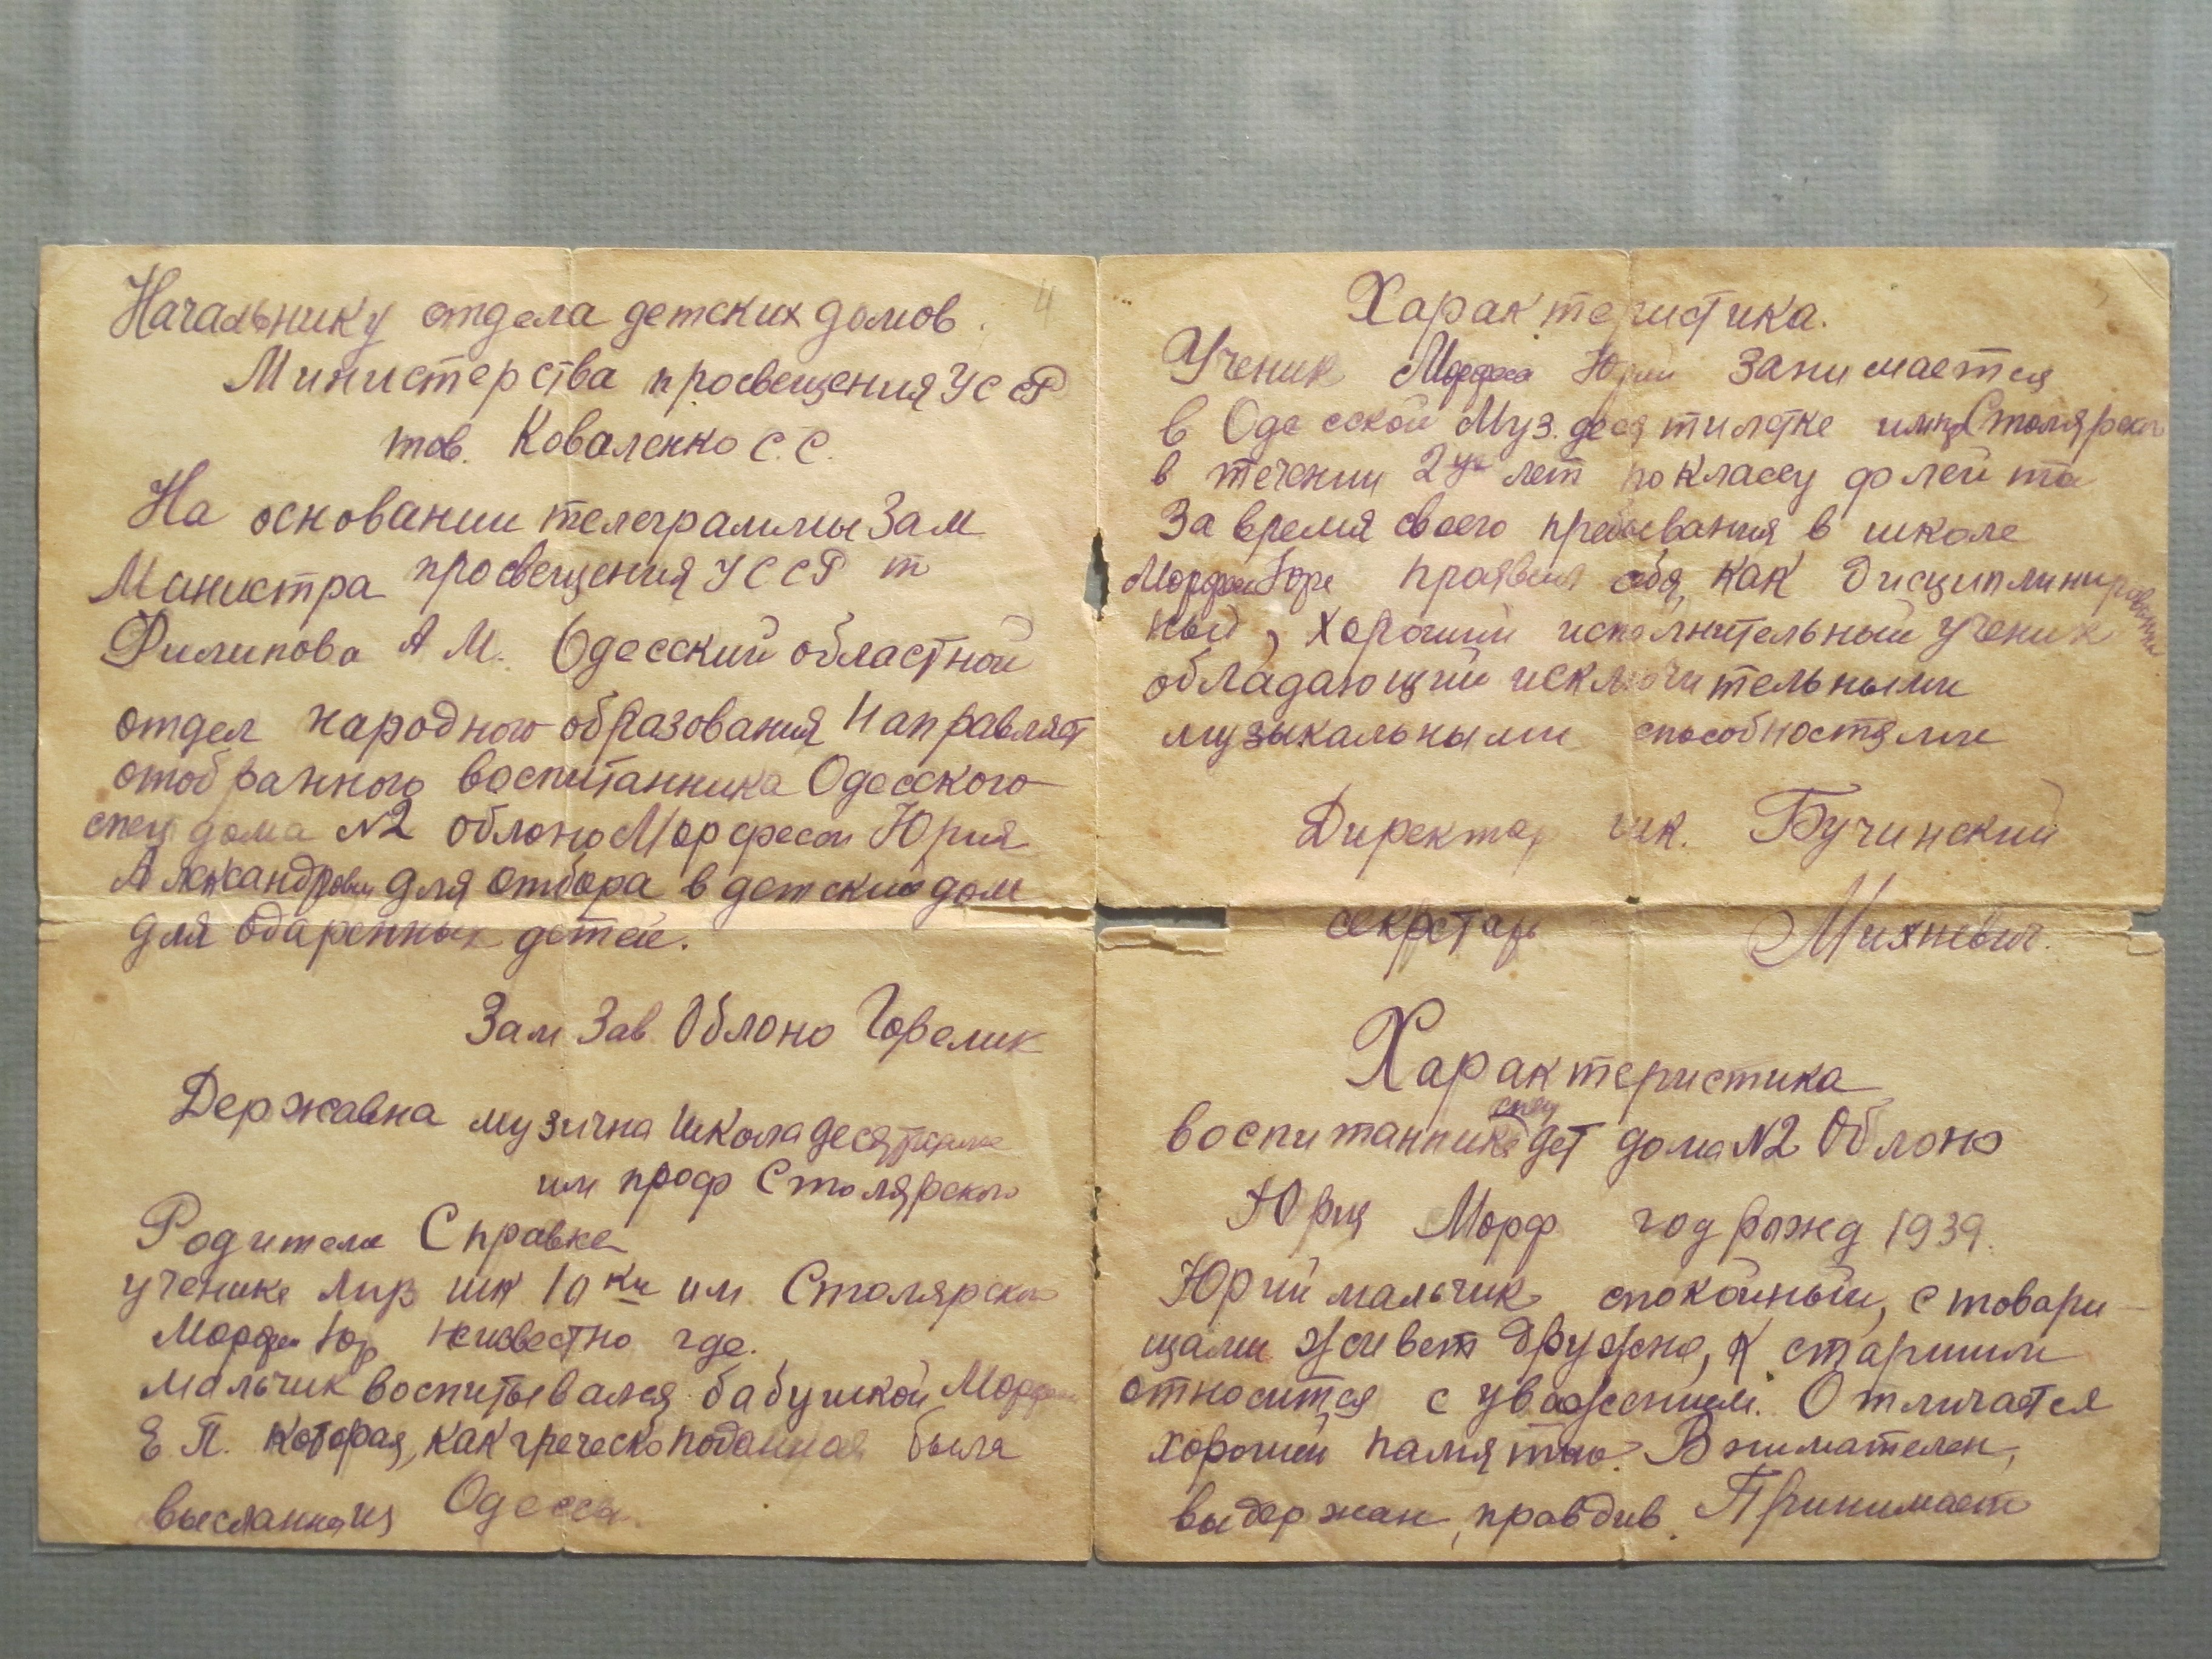 Начальнику отдела детских домов
Министерства просвещения УССР
тов. Коваленко С.С.
На основании телеграммы Зам
Министра просвещения УССР т
Филипова А М. Одесский областной
отдел народного образования направляет
отобранного воспитанника Одесского
спец дома №2 облоно Морфеси Юрия
Александрович для отбора в детский дом
для одаренных детей.
Зам Зав Облоно Горелик
Державна музична школа десятирічка
им проф Столярского
Родители Справка
ученика муз шк 10 ки им Столярского
Морфеси Юр неизвестно где.
Мальчик воспитывался бабушкой Морфеси
Е.П. которая, как греческоподанная была
выслана из Одессы.
Характеристика.
Ученик Морфеси Юрий занимается
в Одесской Муз. десятилетке им Столярского
в течении 2 ух лет по классу флейта
За время своего пребывания в школе
Морфеси Юре проявил себя, как дисциплинирован
ный, хороший исполнительный ученик
обладающий исключительными
музыкальными способностями
Директор шк. Бучинский
секретарь Михневич.
Характеристика
воспитанника спец дет дома №2 Облоно
Юрия Морф год рожд 1939.
Юрий мальчик спокойный, с товари-
щами живет дружно, к старшим
относится с уважением. Отличается
хорошей памятью. Внимателен,
выдержан, правдив. Принимает